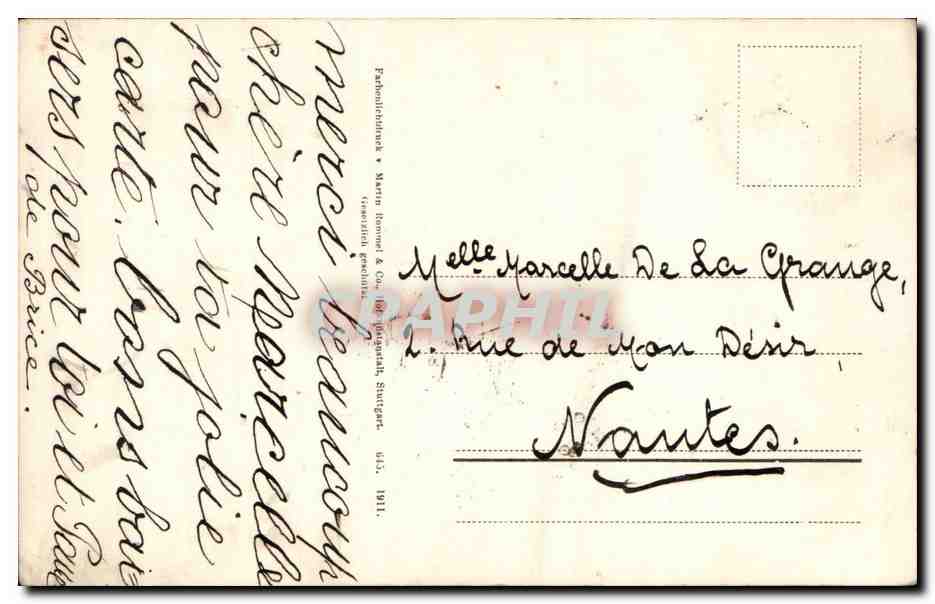 merci beaucoup
chère Marcelle
pour ta jolie
carte. bons bai=
sers pour toi et
de Brice.
Farbenlichtdruck ▾ Martin Rommel & Co., Hofkunstanstalt, Stuttgart. 645. 1911.
Gesetzlich geschützt.
CARAPHIL
Melle Marcelle De La Grange,
2. Rue de Mon Désir
Nantes.